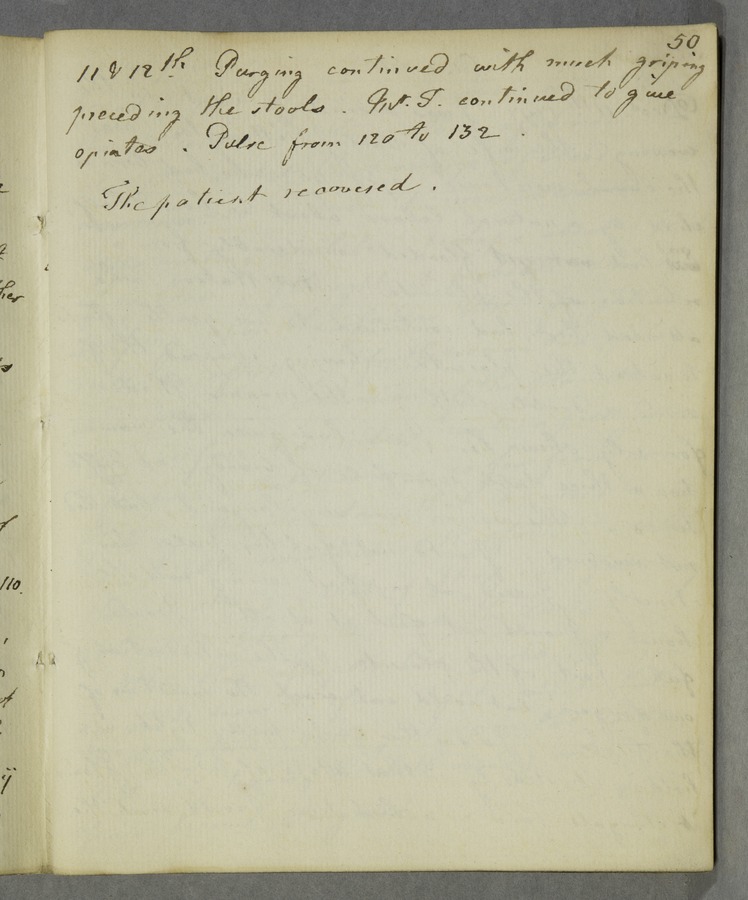 50
11 & 12th Purging continued with much griping
preceding the stools. Mr. T. continued to give
opiates. Pulse from 120 to 132.
The patient recovered.
110.